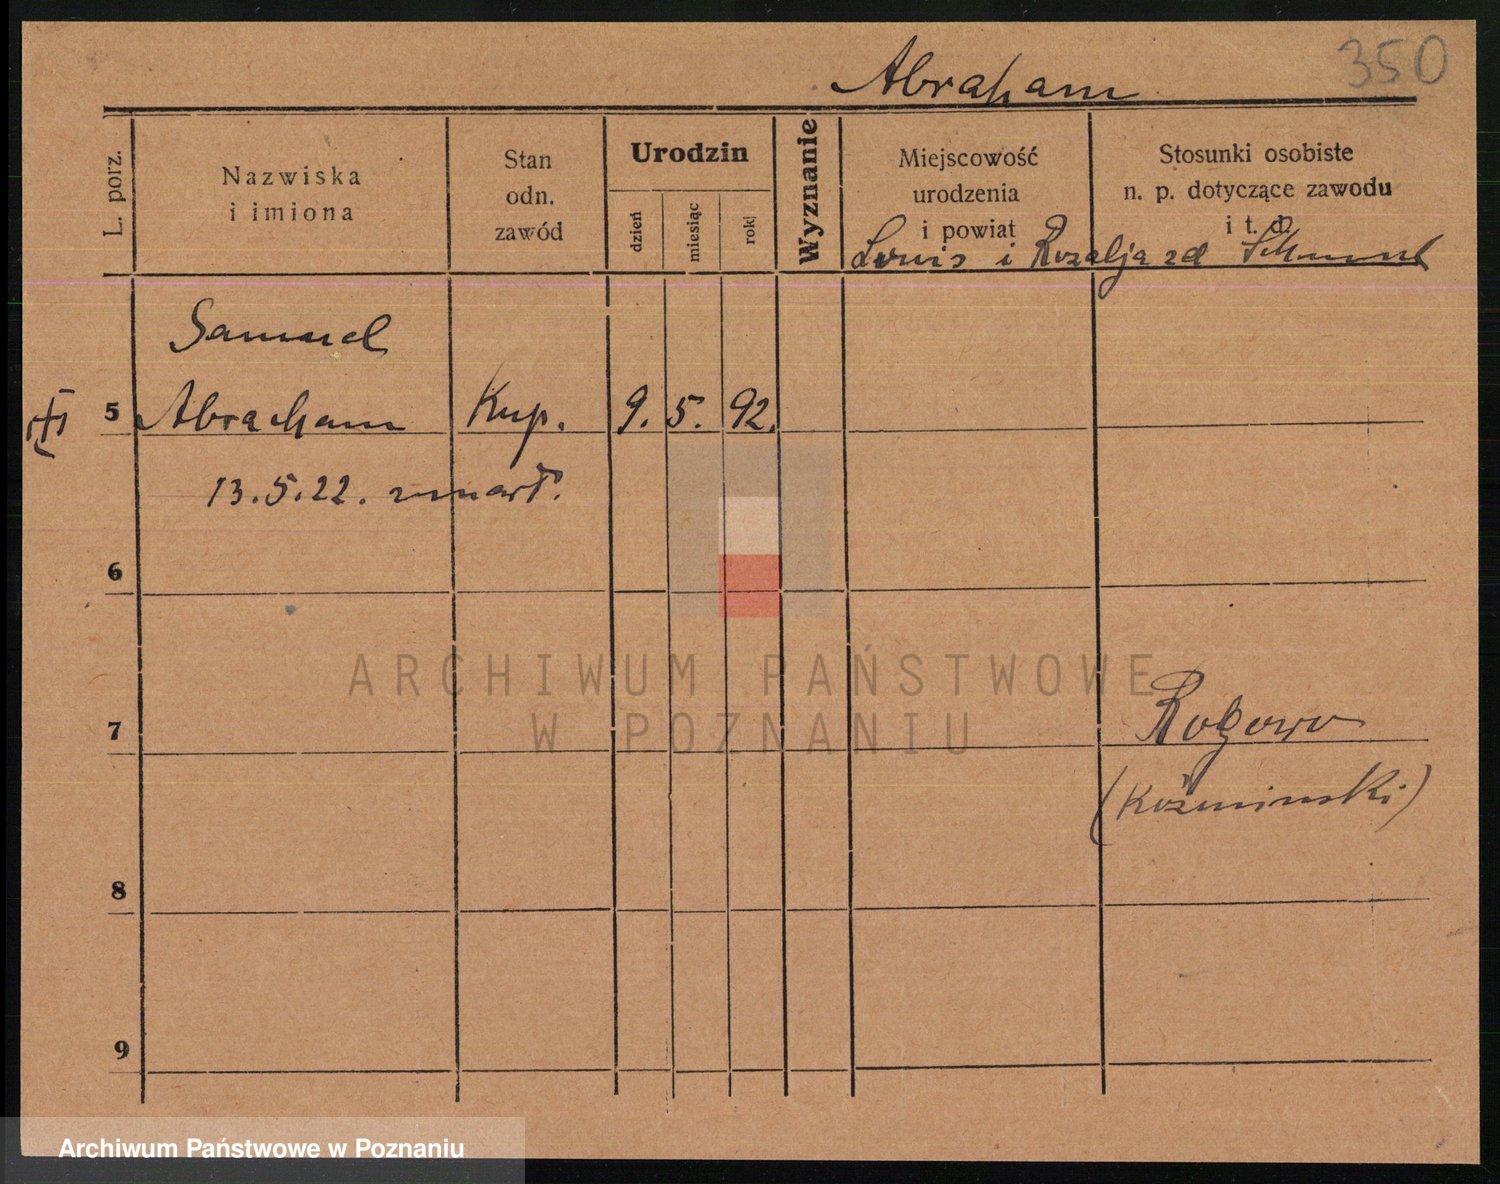 350
Abraham
L. porz.
Nazwiska
i imiona
Stan
odn.
zawód
Urodzin
dzień
miesiąc
rok
Wyznanie
Miejscowość
urodzenia
i powiat
Stosunki osobiste
n. p. dotyczące zawodu
i t. d.
Louis i Rozalja zd
Samuel
5 Abraham Kup. 9. 5. 92.
13.5.22. zmarł.
6
7 Rogowo
(Koźminski)
8
9
ARCHIWUM PAŃSTWOWE
W POZNANIU
Archiwum Państwowe w Poznaniu